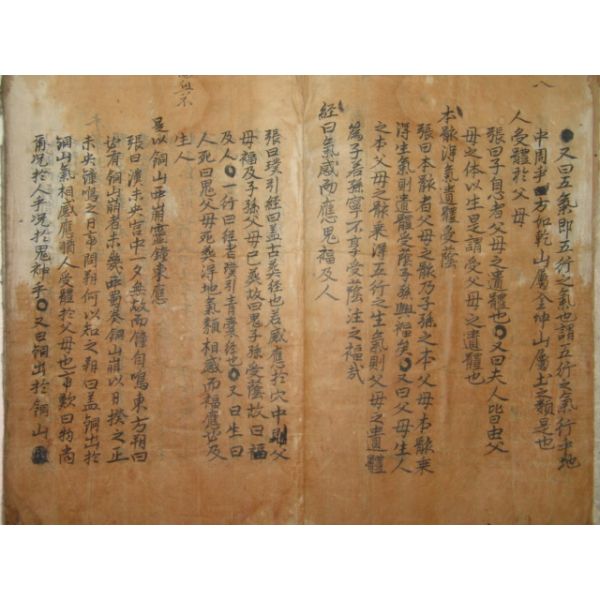 又曰五氣即五行之氣也謂五行之氣行乎地
中周乎四方如乾山屬金坤山屬土之類是也
人受體於父母
張曰子息者父母之遺體也又曰夫人皆由父
母之体以生是謂受父母之遺體也
本骸淂氣遺體受䕃
張曰本骸者父母之骸乃子孫之本父母本骸乗
淂生氣則遺體受䕃子孫興福矣又曰父母生人
之本父母之骸乗淂五行之生氣則父母之遺體
為子若孫寧不享受䕃注之福哉
經曰氣感而應鬼福及人
張曰璞引經曰盖古葬経也若感應於穴中則父
母福及子孫父母已葬故曰鬼子孫受䕃故曰福
及人一行曰経者璞引青囊経也又曰生曰
人死曰鬼父母死葬淂地氣類相感而福應必及
生人
是以銅山西崩靈鐘東應
張曰漢未央宫中一夕無故而鐘自鳴東方朔曰
必有銅山崩者未幾西蜀奏銅山崩以日揆之正
未央鐘鳴之日帝問朔何以知之朔曰盖銅出於
銅山氣相感應猶人受體於父母也帝歎曰物尚
爾况於人乎况於鬼神乎又曰銅出於銅山
八